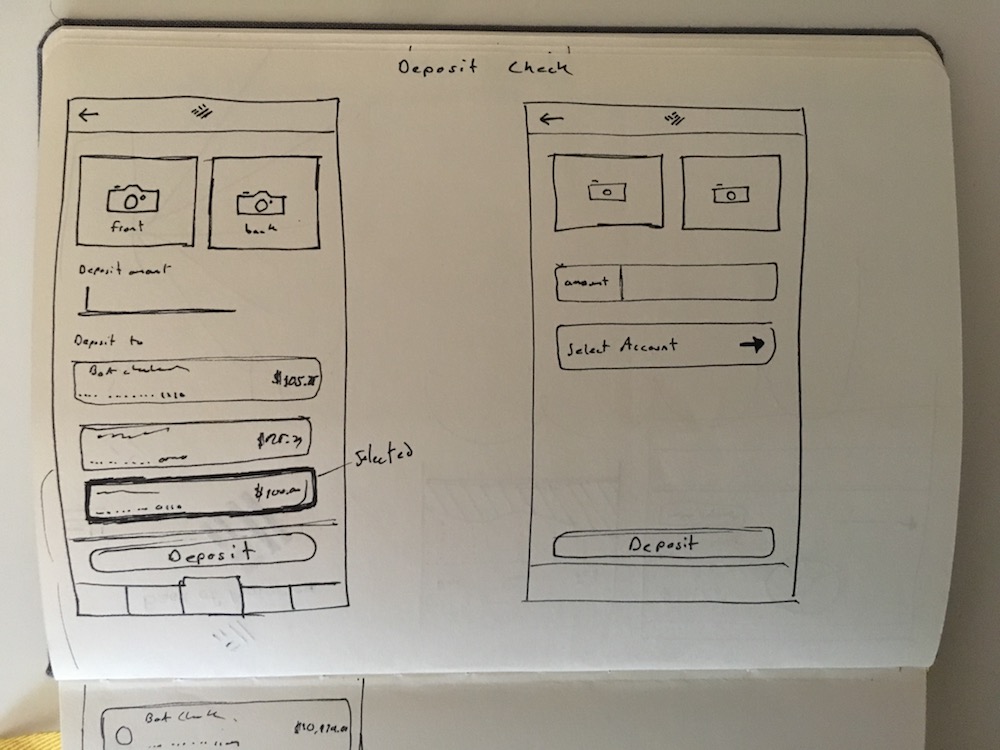 Deposit Check
front
back
Deposit amount
Deposit to
BoA
$105.
$
$100.00
Selected
Deposit
amount
Select Account
Deposit
BoA